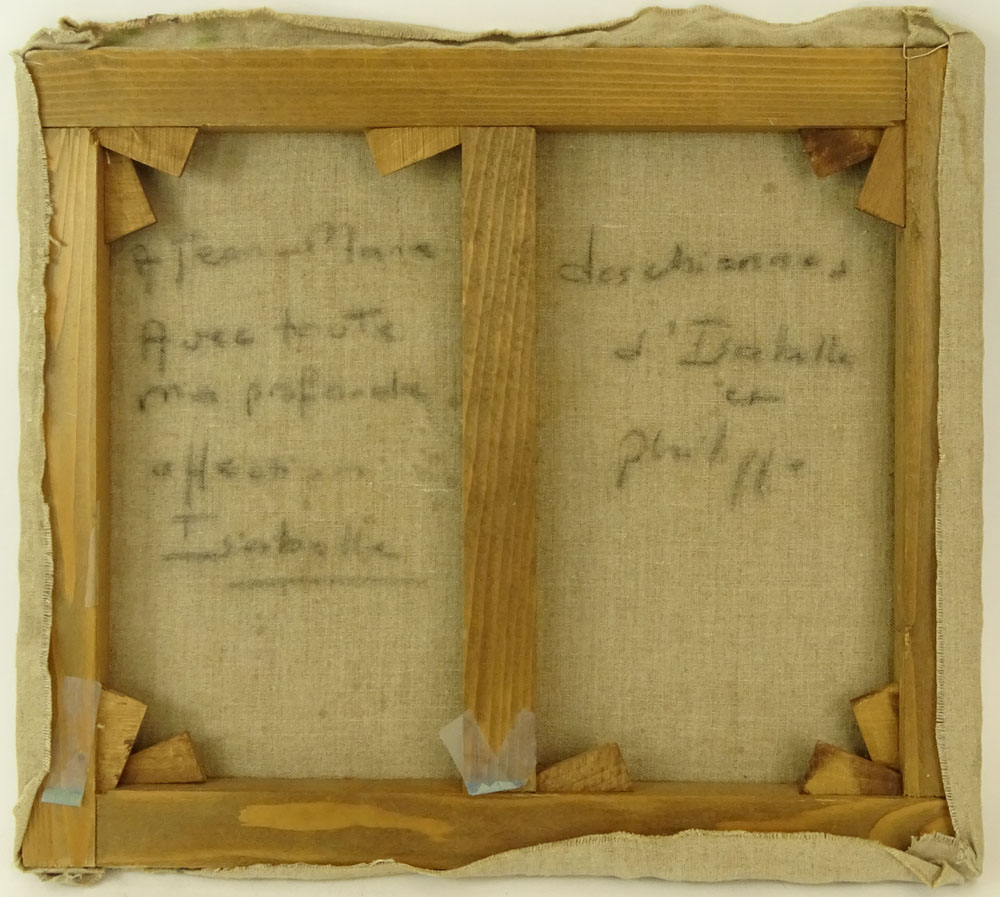 A Jean-Marie
Avec toute
ma profonde
affection
Isabelle
des chiennes
d'Isabelle
et
philippe